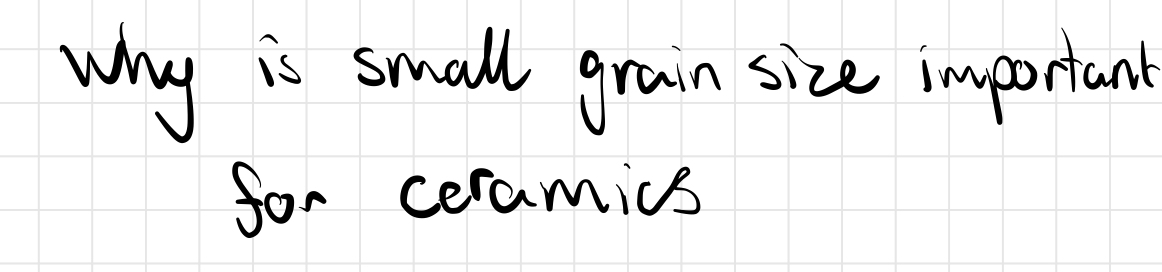 Why is small grain size important
for ceramics